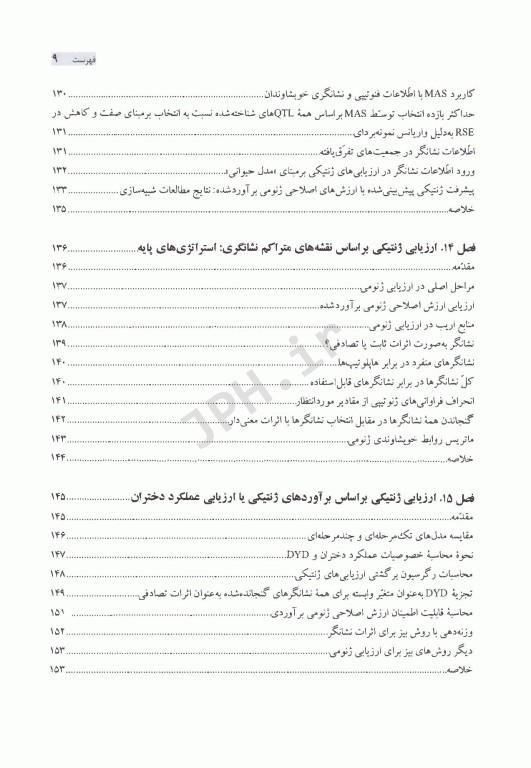 فهرست ۹
کاربرد MAS با اطّلاعات فنوتیپی و نشانگری خویشاوندان ۱۳۰
حداکثر بازده انتخاب توسّط MAS براساس همهٔ QTLهای شناخته‌شده نسبت به انتخاب برمبنای صفت و کاهش در
RSE به‌دلیل واریانس نمونه‌برداری ۱۳۱
اطلاعات نشانگر در جمعیت‌های تفرّق‌یافته ۱۳۱
ورود اطّلاعات نشانگر در ارزیابی‌های ژنتیکی برمبنای «مدل حیوانی» ۱۳۲
پیشرفت ژنتیکی پیش‌بینی‌شده با ارزش‌های اصلاحی ژنومی برآوردشده: نتایج مطالعات شبیه‌سازی ۱۳۳
خلاصه ۱۳۵
فصل ۱۴. ارزیابی ژنتیکی براساس نقشه‌های متراکم نشانگری: استراتژی‌های پایه ۱۳۶
مقدّمه ۱۳۶
مراحل اصلی در ارزیابی ژنومی ۱۳۷
ارزیابی ارزش اصلاحی ژنومی برآوردشده ۱۳۷
منابع اریب در ارزیابی ژنومی ۱۳۸
نشانگر به‌صورت اثرات ثابت یا تصادفی؟ ۱۳۹
نشانگرهای منفرد در برابر هاپلوتیپ‌ها ۱۴۰
کلّ نشانگرها در برابر نشانگرهای قابل‌استفاده ۱۴۰
انحراف فراوانی‌های ژنوتیپی از مقادیر موردانتظار ۱۴۱
گنجاندن همهٔ نشانگرها در مقابل انتخاب نشانگرها با اثرات معنی‌دار ۱۴۲
ماتریس روابط خویشاوندی ژنومی ۱۴۳
خلاصه ۱۴۴
فصل ۱۵. ارزیابی ژنتیکی براساس برآوردهای ژنتیکی یا ارزیابی عملکرد دختران ۱۴۵
مقدّمه ۱۴۵
مقایسه مدل‌های تک‌مرحله‌ای و چندمرحله‌ای ۱۴۶
نحوهٔ محاسبهٔ خصوصیات عملکرد دختران و DYD ۱۴۷
محاسبات رگرسیون برگشتی ارزیابی‌های ژنتیکی ۱۴۸
تجزیهٔ DYD به‌عنوان متغیّر وابسته برای همهٔ نشانگرهای گنجانده‌شده به‌عنوان اثرات تصادفی ۱۴۹
محاسبهٔ قابلیت اطمینان ارزش اصلاحی ژنومی برآوردی ۱۵۱
وزنه‌دهی با روش بیز برای اثرات نشانگر ۱۵۲
دیگر روش‌های بیز برای ارزیابی ژنومی ۱۵۳
خلاصه ۱۵۳
JPH.ir